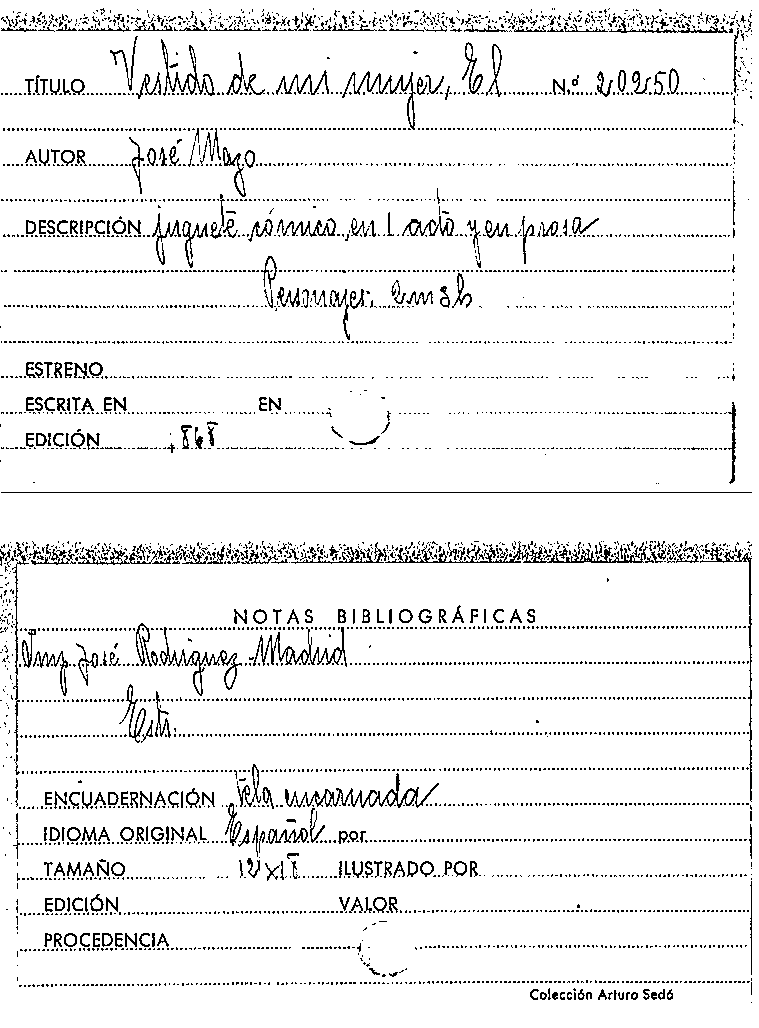 TÍTULO Vestido de mi mujer, El N.º 20250
AUTOR José Mazo
DESCRIPCIÓN juguete cómico, en 1 acto y en prosa
Personajes. 2m3h
ESTRENO
ESCRITA EN EN
EDICIÓN 1868
NOTAS BIBLIOGRÁFICAS
Imp José Rodriguez-Madrid
Estr.
ENCUADERNACIÓN tela encarnada
IDIOMA ORIGINAL Español por
TAMAÑO 12x18 ILUSTRADO POR
EDICIÓN VALOR
PROCEDENCIA
Colección Arturo Sedó